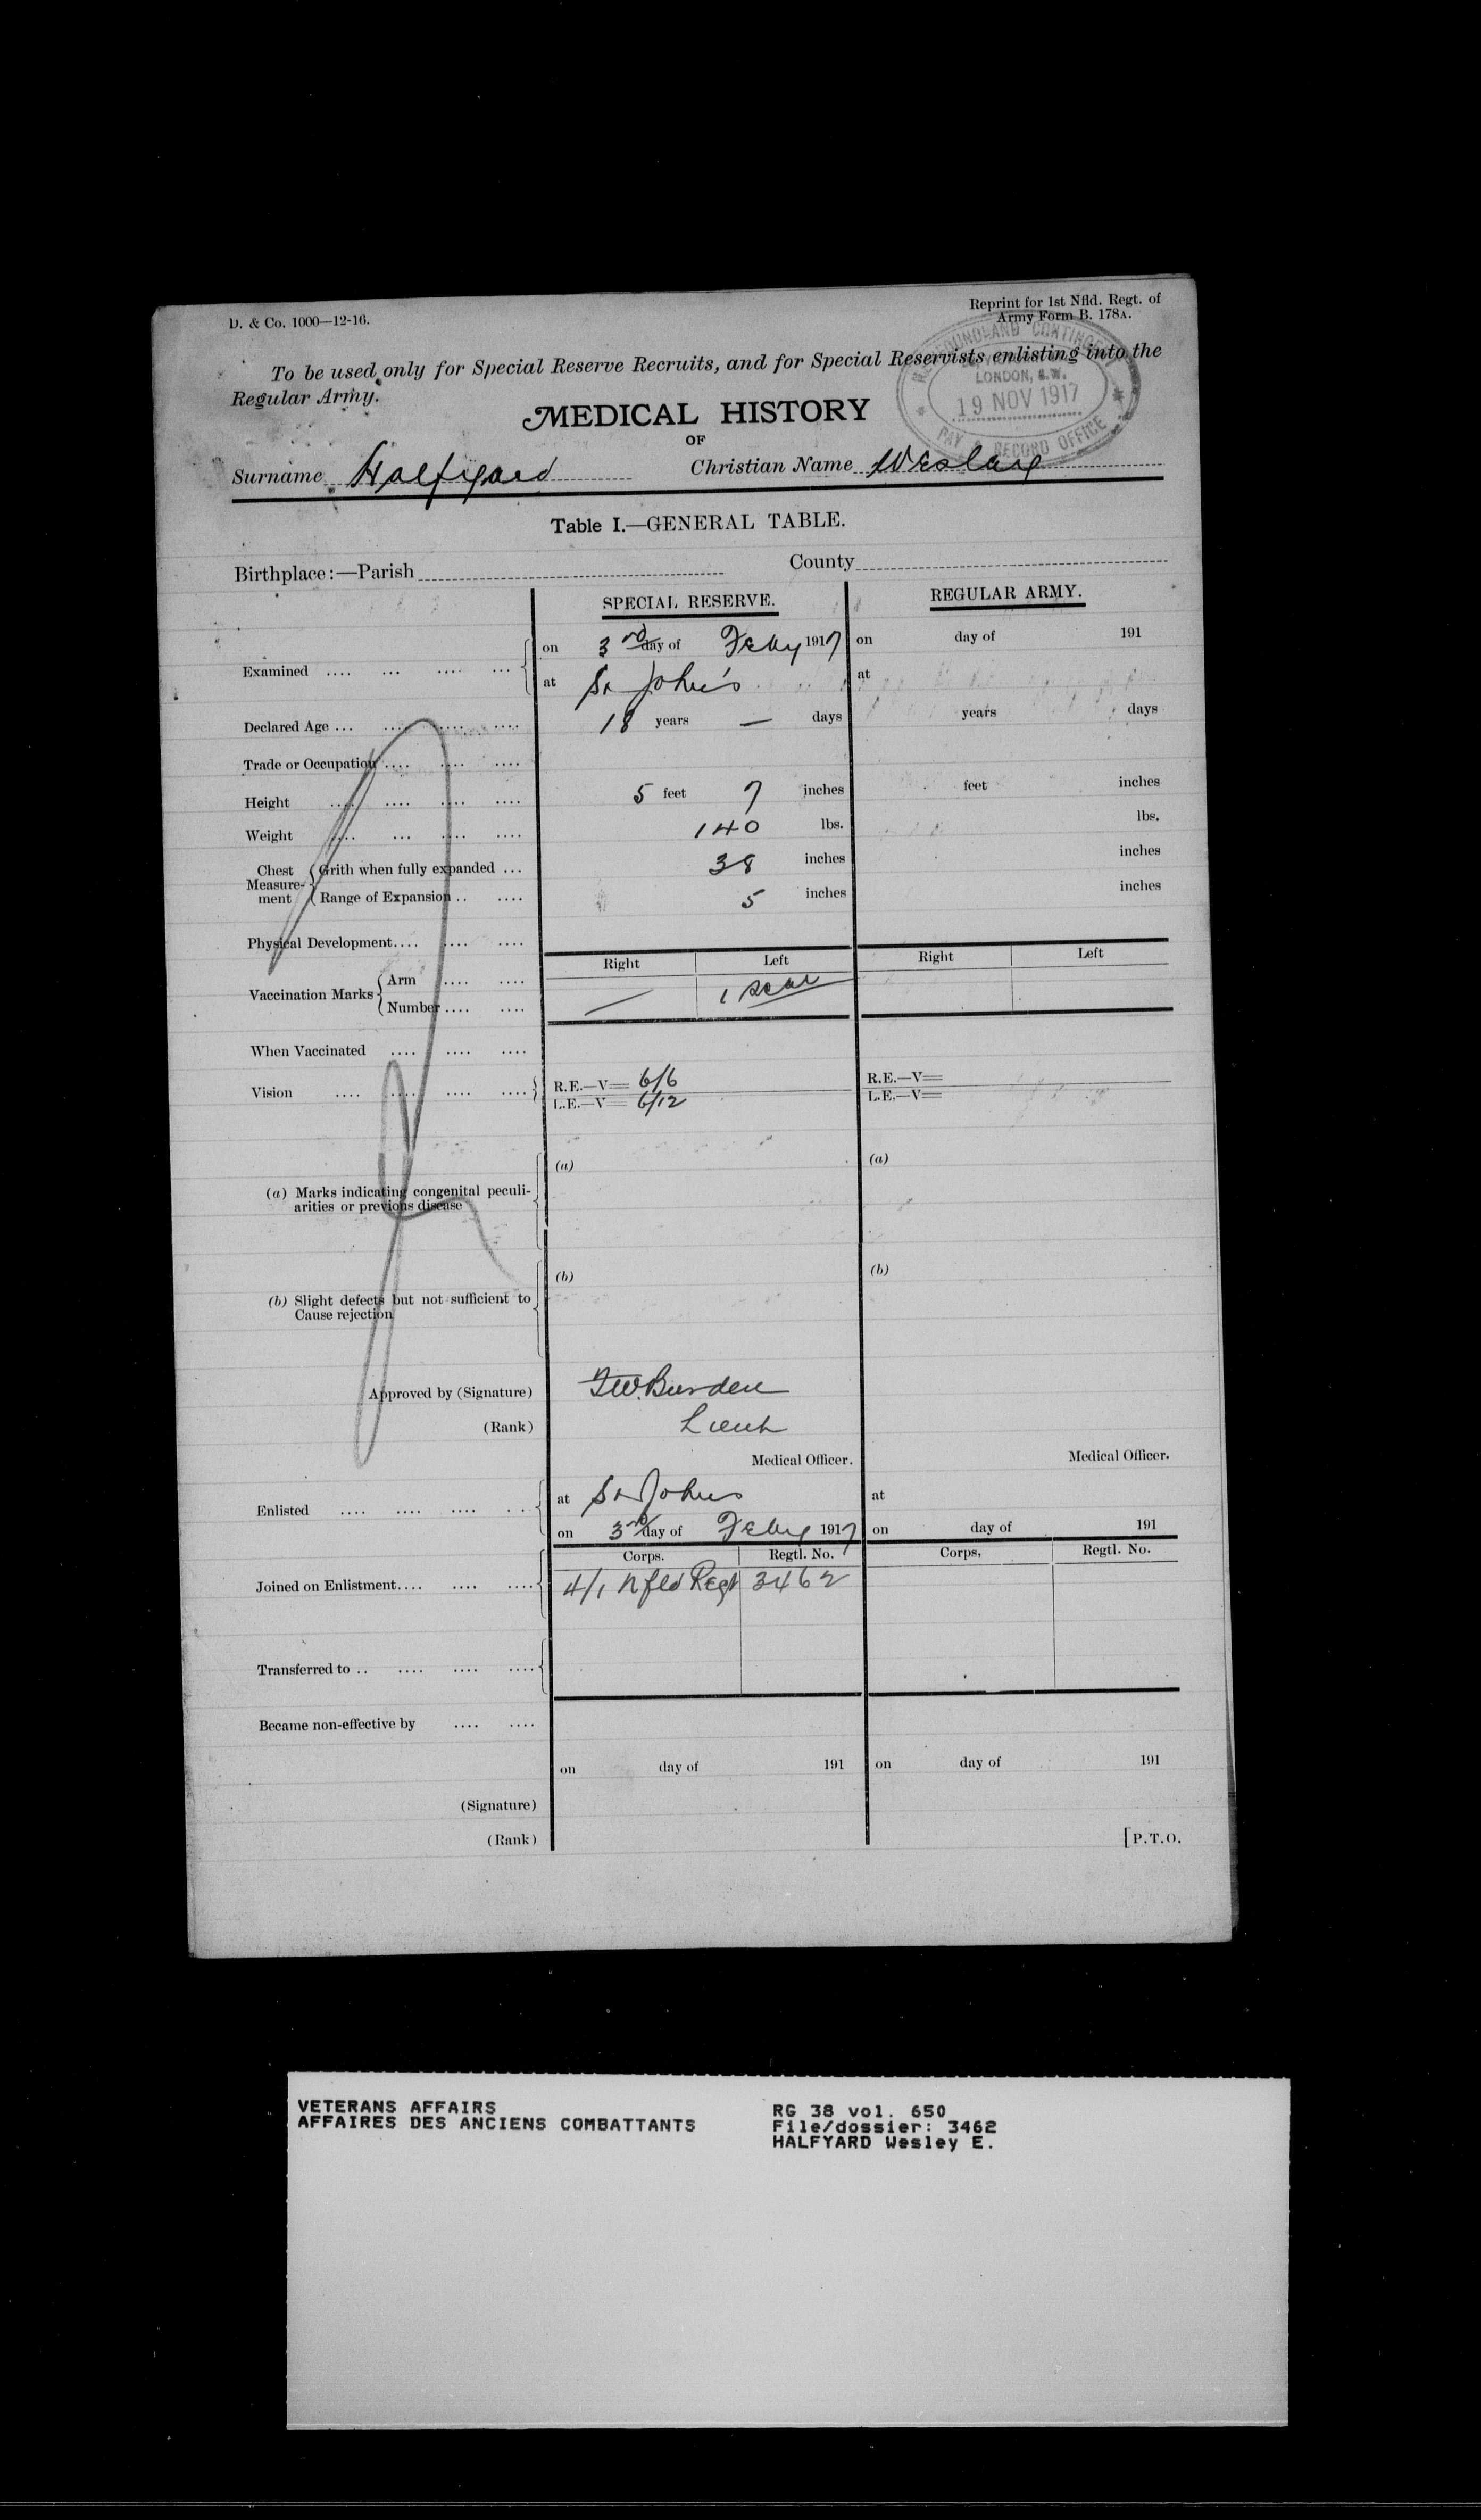 D. & Co. 1000—12-16.
Reprint for 1st Nfld. Regt. of
Army Form B. 178A.
NEWFOUNDLAND CONTINGENT
LONDON, S.W.
19 NOV 1917
PAY & RECORD OFFICE
To be used only for Special Reserve Recruits, and for Special Reservists enlisting into the
Regular Army.
MEDICAL HISTORY
OF
Surname Halfyard Christian Name Wesley
Table I.—GENERAL TABLE.
Birthplace:—Parish County
SPECIAL RESERVE. REGULAR ARMY.
Examined .... ... .... ... on 3rd day of Feby 1917 on day of 191
at St John's at
Declared Age ... .... .... .... 18 years — days years days
Trade or Occupation .... .... ....
Height .... .... .... .... 5 feet 7 inches feet inches
Weight .... ... .... .... 140 lbs. lbs.
Chest Measure-ment Grith when fully expanded ... 38 inches inches
Range of Expansion .. .... 5 inches inches
Physical Development.... .... ....
Right Left Right Left
Vaccination Marks Arm .... ....
Number .... .... — 1 scar
When Vaccinated .... .... ....
Vision .... .... .... .... R.E.—V= 6/6 R.E.—V=
L.E.—V= 6/12 L.E.—V=
(a) Marks indicating congenital peculi-
arities or previous disease
(a) (a)
(b) Slight defects but not sufficient to
Cause rejection
(b) (b)
Approved by (Signature) F.W. Burden
(Rank) Lieut
Medical Officer. Medical Officer.
Enlisted .... .... .... .. at St Johns at
on 3rd day of Feby 1917 on day of 191
Corps. Regtl. No. Corps, Regtl. No.
Joined on Enlistment.... .... .... 4/1 Nfld Regt 3462
Transferred to .. .... .... ....
Became non-effective by .... ....
on day of 191 on day of 191
(Signature)
(Rank)
[P.T.O.
VETERANS AFFAIRS
AFFAIRES DES ANCIENS COMBATTANTS
RG 38 vol. 650
File/dossier: 3462
HALFYARD Wesley E.